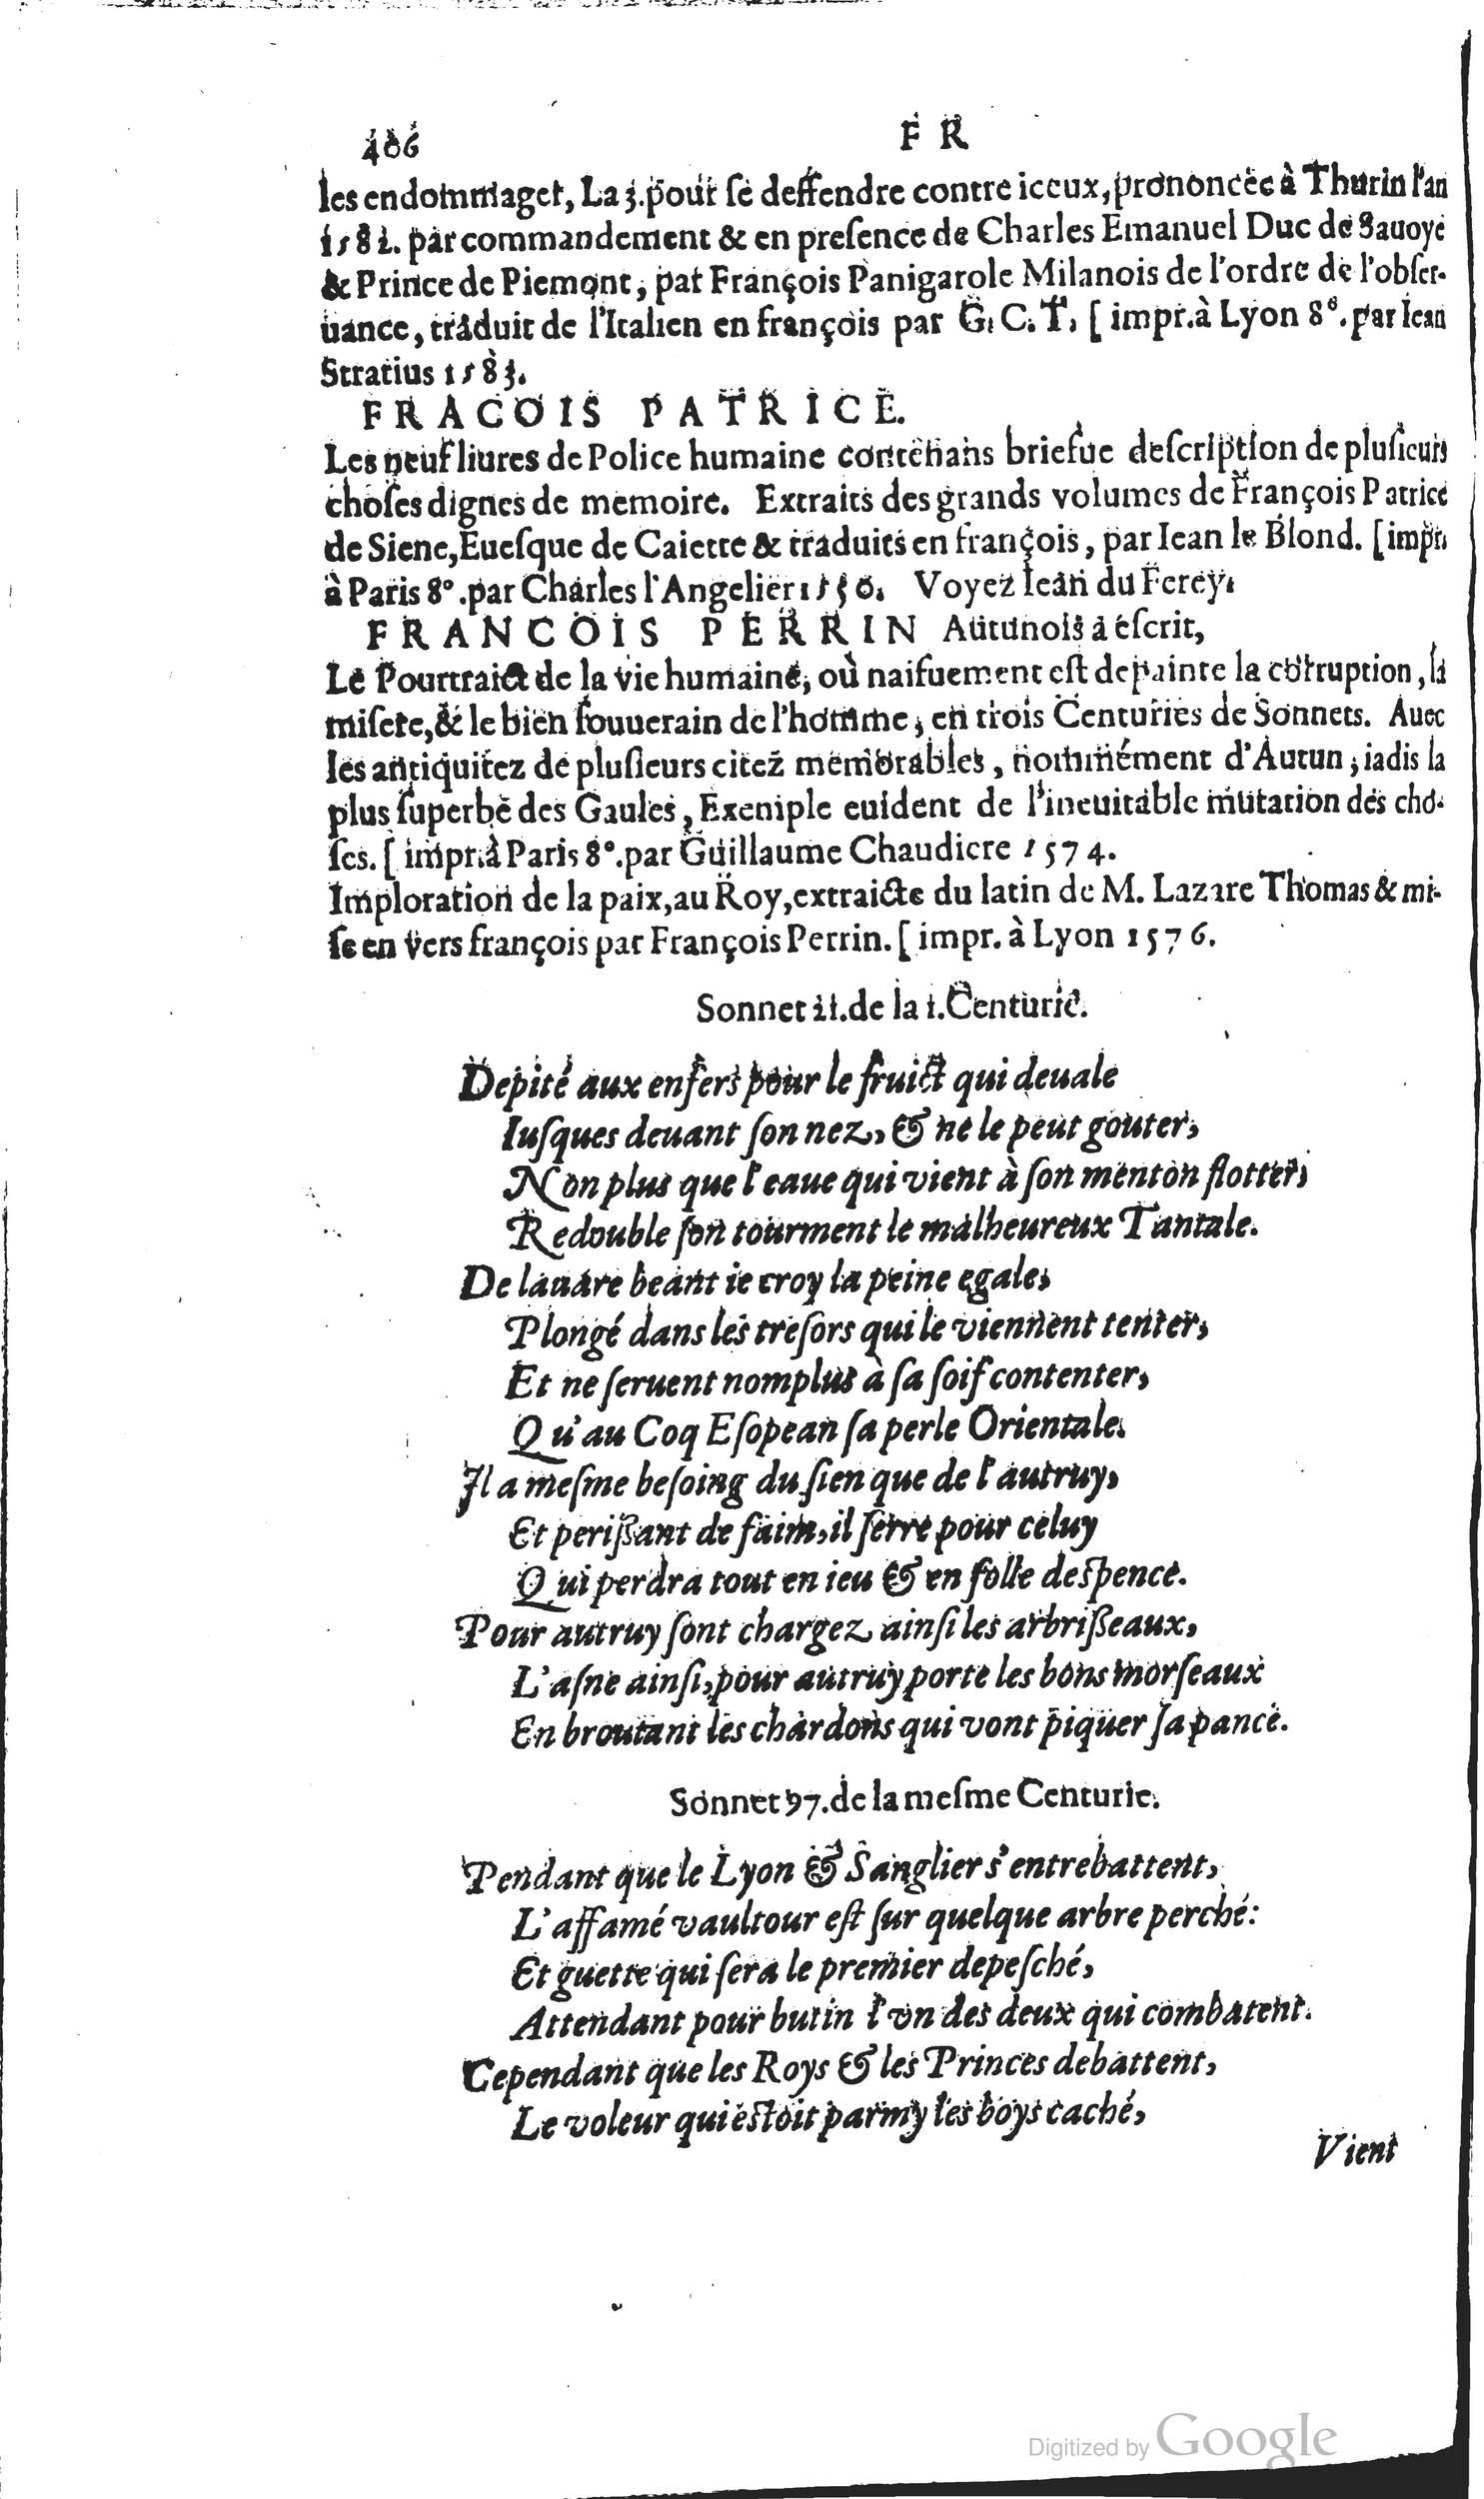 406 F R
les endommager, La 3. pour ſe deffendre contre iceux, prononcée à Thurin l'an
1582. par commandement & en preſence de Charles Emanuel Duc de Sauoye
& Prince de Piemont, par François Panigarole Milanois de l'ordre de l'obſer-
uance, traduit de l'Italien en françois par G. C. T. [ impr. à Lyon 8°. par Iean
Stratius 1583.
FRACOIS PATRICE.
Les neuf liures de Police humaine contenans briefue deſcription de pluſieurs
choſes dignes de memoire. Extraits des grands volumes de François Patrice
de Siene, Eueſque de Caiette & traduits en françois, par Iean le Blond. [impr.
à Paris 8°. par Charles l'Angelier 1550. Voyez Iean du Ferey.
FRANCOIS PERRIN Autunois a eſcrit,
Le Pourtraict de la vie humaine, où naifuement eſt depainte la corruption, la
miſere, & le bien ſouuerain de l'homme, en trois Centuries de Sonnets. Auec
les antiquitez de pluſieurs citez memorables, nommément d'Autun, iadis la
plus ſuperbe des Gaules, Exemple euident de l'ineuitable mutation des cho-
ſes. [ impr. à Paris 8°. par Guillaume Chaudiere 1574.
Imploration de la paix, au Roy, extraicte du latin de M. Lazare Thomas & mi-
ſe en vers françois par François Perrin. [ impr. à Lyon 1576.
Sonnet 21. de la 1. Centurie.
Depité aux enfers pour le fruict qui deuale
Iuſques deuant ſon nez, & ne le peut gouter,
Non plus que l'eaue qui vient à ſon menton flotter,
Redouble ſon tourment le malheureux Tantale.
De lauare beant ie croy la peine egale,
Plongé dans les treſors qui le viennent tenter,
Et ne ſeruent nomplus à ſa ſoif contenter,
Qu'au Coq Eſopean ſa perle Orientale.
Il a meſme beſoing du ſien que de l'autruy,
Et perißant de faim, il ſerre pour celuy
Qui perdra tout en ieu & en folle deſpence.
Pour autruy ſont chargez ainſi les arbrißeaux,
L'aſne ainſi, pour autruy porte les bons morſeaux
En broutant les chardons qui vont piquer ſa pance.
Sonnet 97. de la meſme Centurie.
Pendant que le Lyon & Sanglier s'entrebattent,
L'affamé vaultour eſt ſur quelque arbre perché:
Et guette qui ſera le premier depeſché,
Attendant pour butin l'vn des deux qui combatent.
Cependant que les Roys & les Princes debattent,
Le voleur qui eſtoit parmy les boys caché,
Vient
Digitized by Google